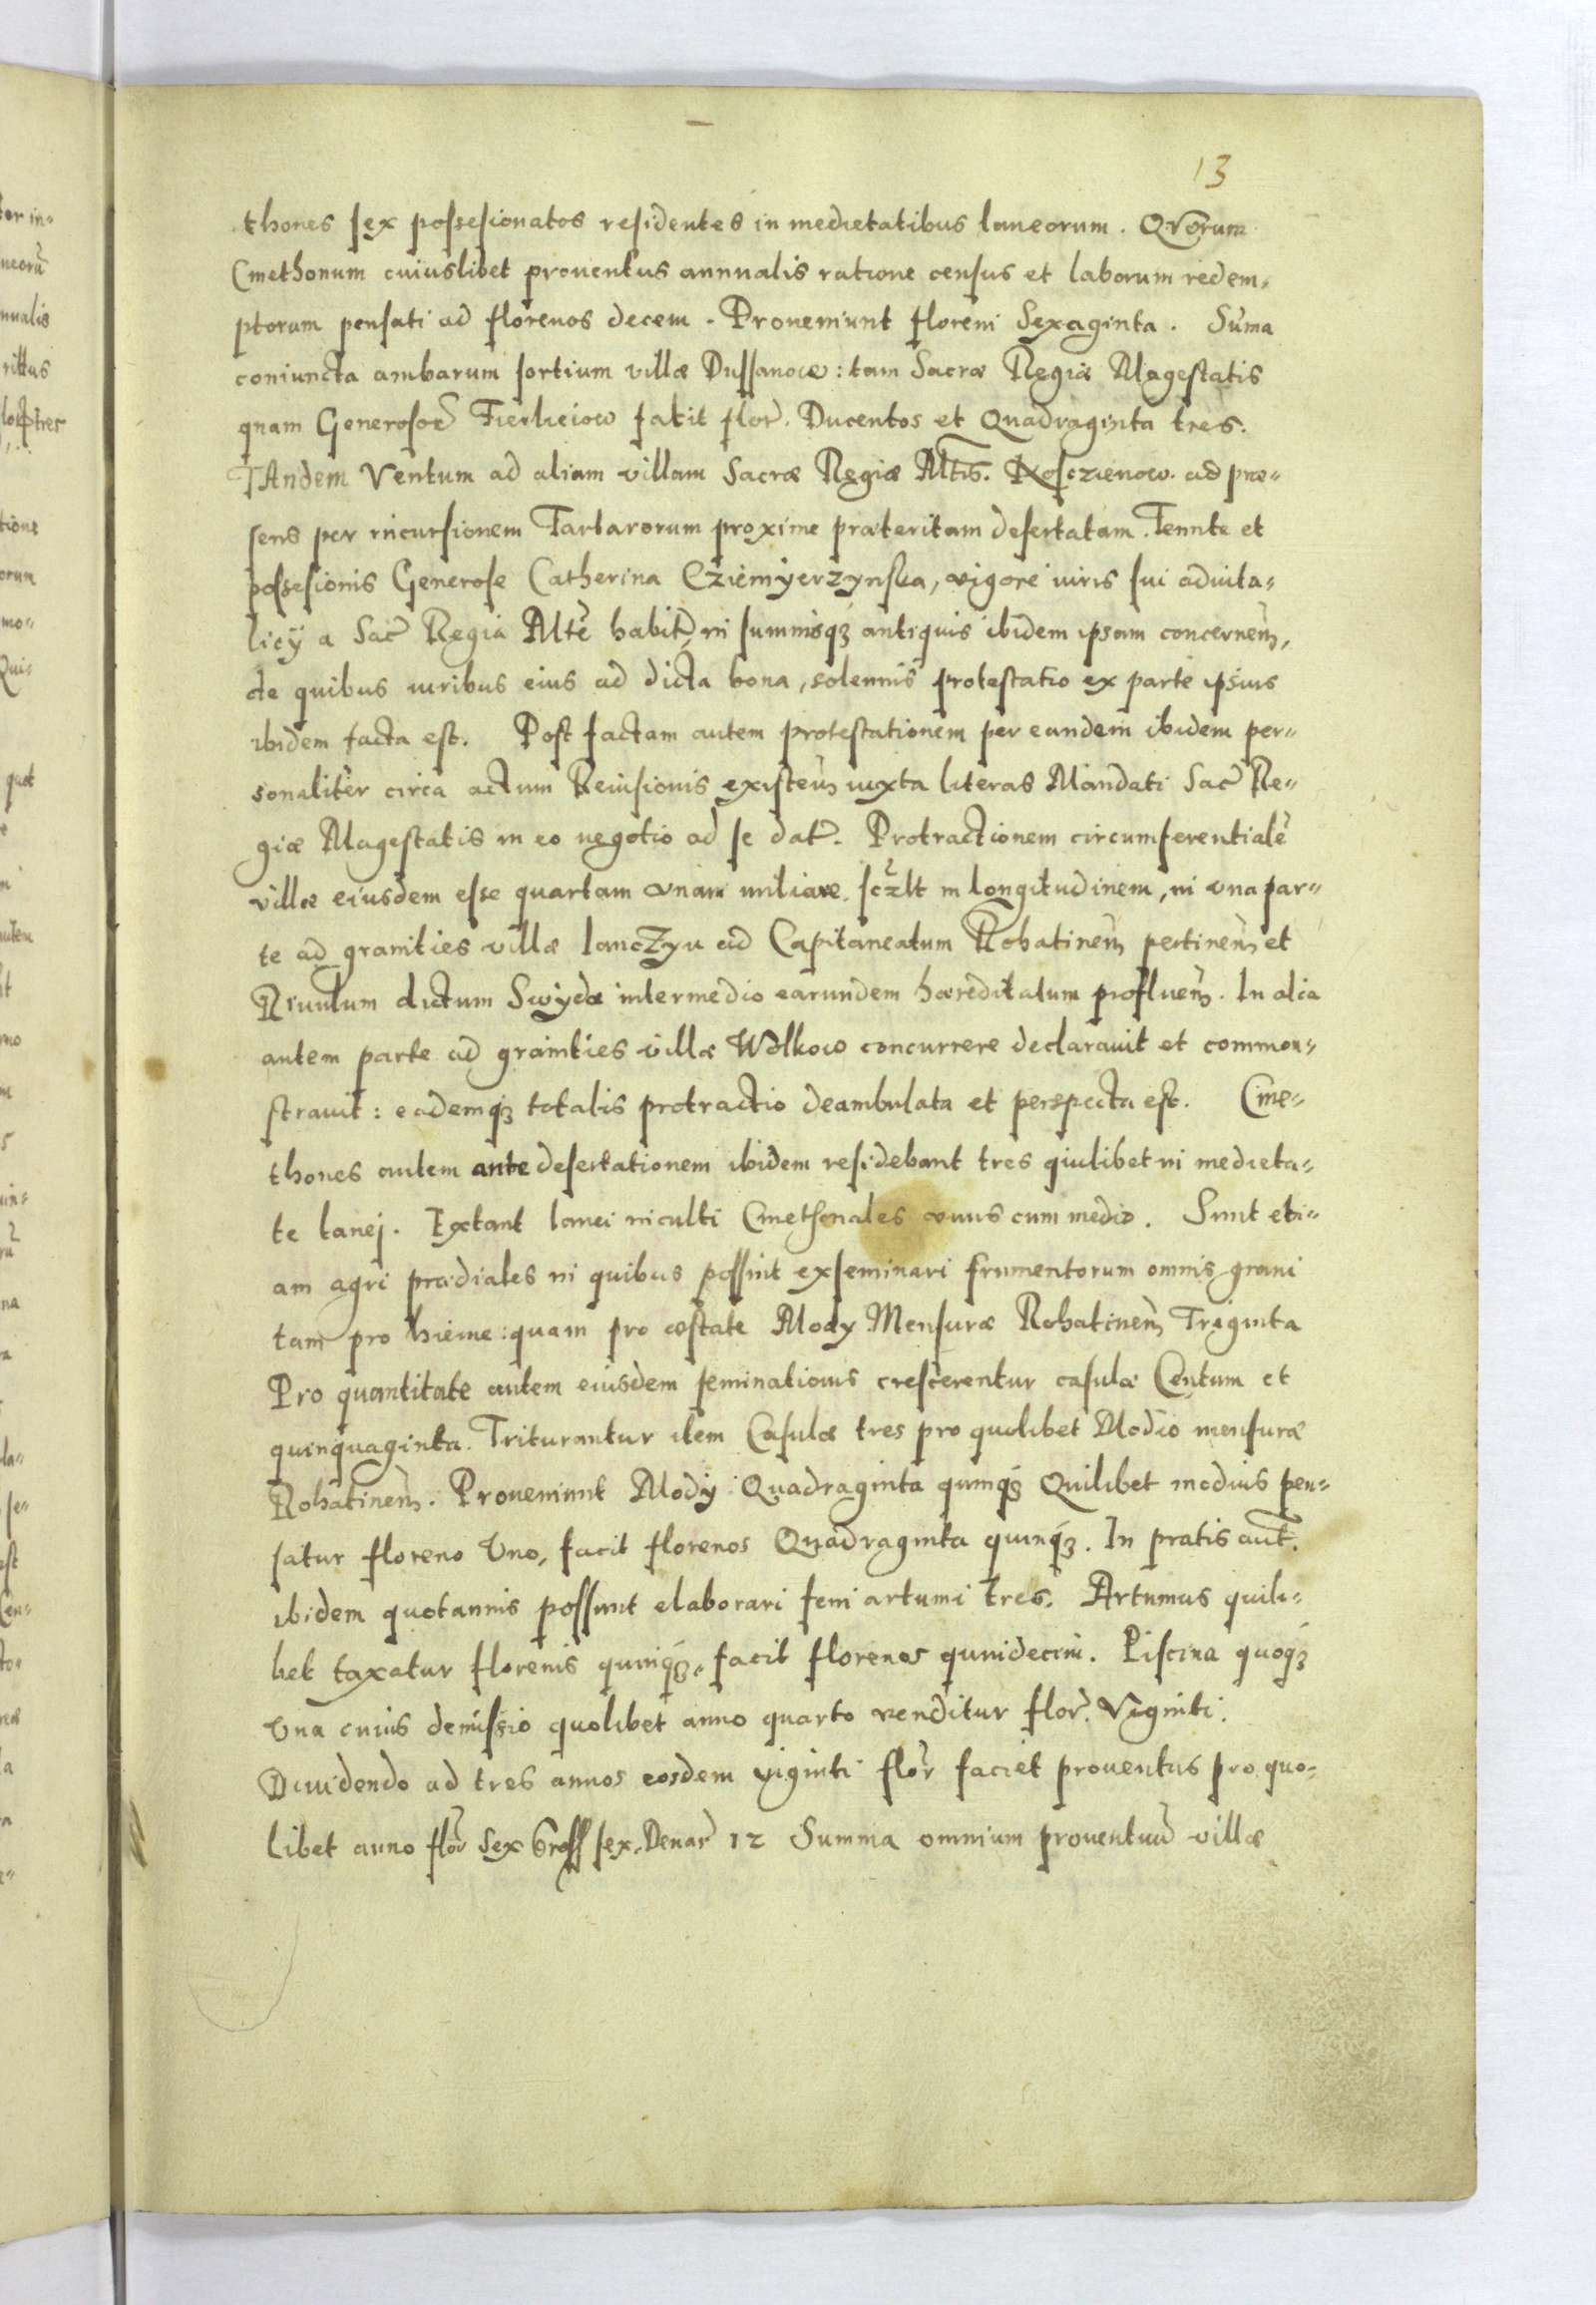 13
thones sex possesionatos residentes in medietatibus laneorum. Qvorum
Cmethonum cuiuslibet prouentus annualis ratione census et laborum redem-
ptorum pensati ad florenos decem. Proueniunt floreni Sexaginta. Suma
coniuncta ambarum sortium villæ Dussanow: tam Sacræ Regiæ Magestatis
quam Generosor facit flor. Ducentos et Quadraginta tres.
TAndem Ventum ad aliam villam Sacræ Regiæ Mtis. Kosczienow. ad præ-
sens per incursionem Tartarorum proxime præteritam desertatam. Tennte et
possesionis Generose Catherina Cziemÿerzynska, vigore iuris sui aduita-
licÿ a Sac Regia Mte habit, in summisqz antiquis ibidem ipsam concernen,
de quibus iuribus eius ad dicta bona, solennis protestatio ex parte ipsius
ibidem facta est. Post factam autem protestationem per eundem ibidem per-
sonaliter circa actum Reuisionis existen iuxta literas Mandati Sac Re-
giæ Magestatis in eo negotio ad se dat. Protractionem circumferentiale
villæ eiusdem esse quartam vnam miliare sczlt in longitudinem, in vna par-
te ad granities villæ lanczyn ad Capitaneatum Rohatinen pertinen et
Riuulum dictum Swÿda intermedio earundem hæreditatum profluen. In alia
autem parte ad granities villæ Wolkow concurrere declarauit et common-
strauit: eademqz totalis protractio deambulata et perspecta est. Cme-
thones autem ante desertationem ibidem residebant tres quilibet in medieta-
te lanej. Extant lanei inculti Cmethonales vnus cum medio. Sunt eti-
am agri prædiales in quibus possint exseminari frumentorum omnis grani
tam pro hieme: quam pro æstate Mody Mensuræ Rohatinen Triginta
Pro quantitate autem eiusdem seminationis crescerentur casulæ Centum et
quinquaginta. Triturantur item Casulæ tres pro quolibet Modio mensuræ
Rohatinen. Proueniunt Modÿ Quadraginta quinqz Quilibet modius pen-
satur floreno Vno, facit florenos Quadraginta quinqz. In pratis aut.
ibidem quotannis possunt elaborari feni artumi tres. Artumus quili-
bet taxatur florenis quinqz, facit florenos quindecim. Piscina quoqz
Vna cuius demissio quolibet anno quarto venditur flor. Viginti.
Diuidendo ad tres annos eosdem viginti flor faciet prouentus pro quo-
libet anno flor sex Gross sex. Denar 12 Summa omnium prouentuu villæ